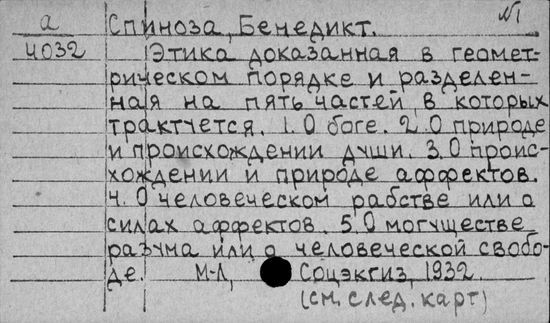 а Спиноза, Бенедикт. №1
4032 Этика доказанная в геомет-
рическом порядке и разделен-
ная на пять частей, в которых
трактуется. 1. О боге. 2. О природе
и происхождении души. 3. О проис-
хождении и природе аффектов.
4. О человеческом рабстве или о
силах аффектов. 5. О могуществе
разума или о человеческой свобо-
де. М-Л, Соцэкгиз, 1932.
(см. след. карт)